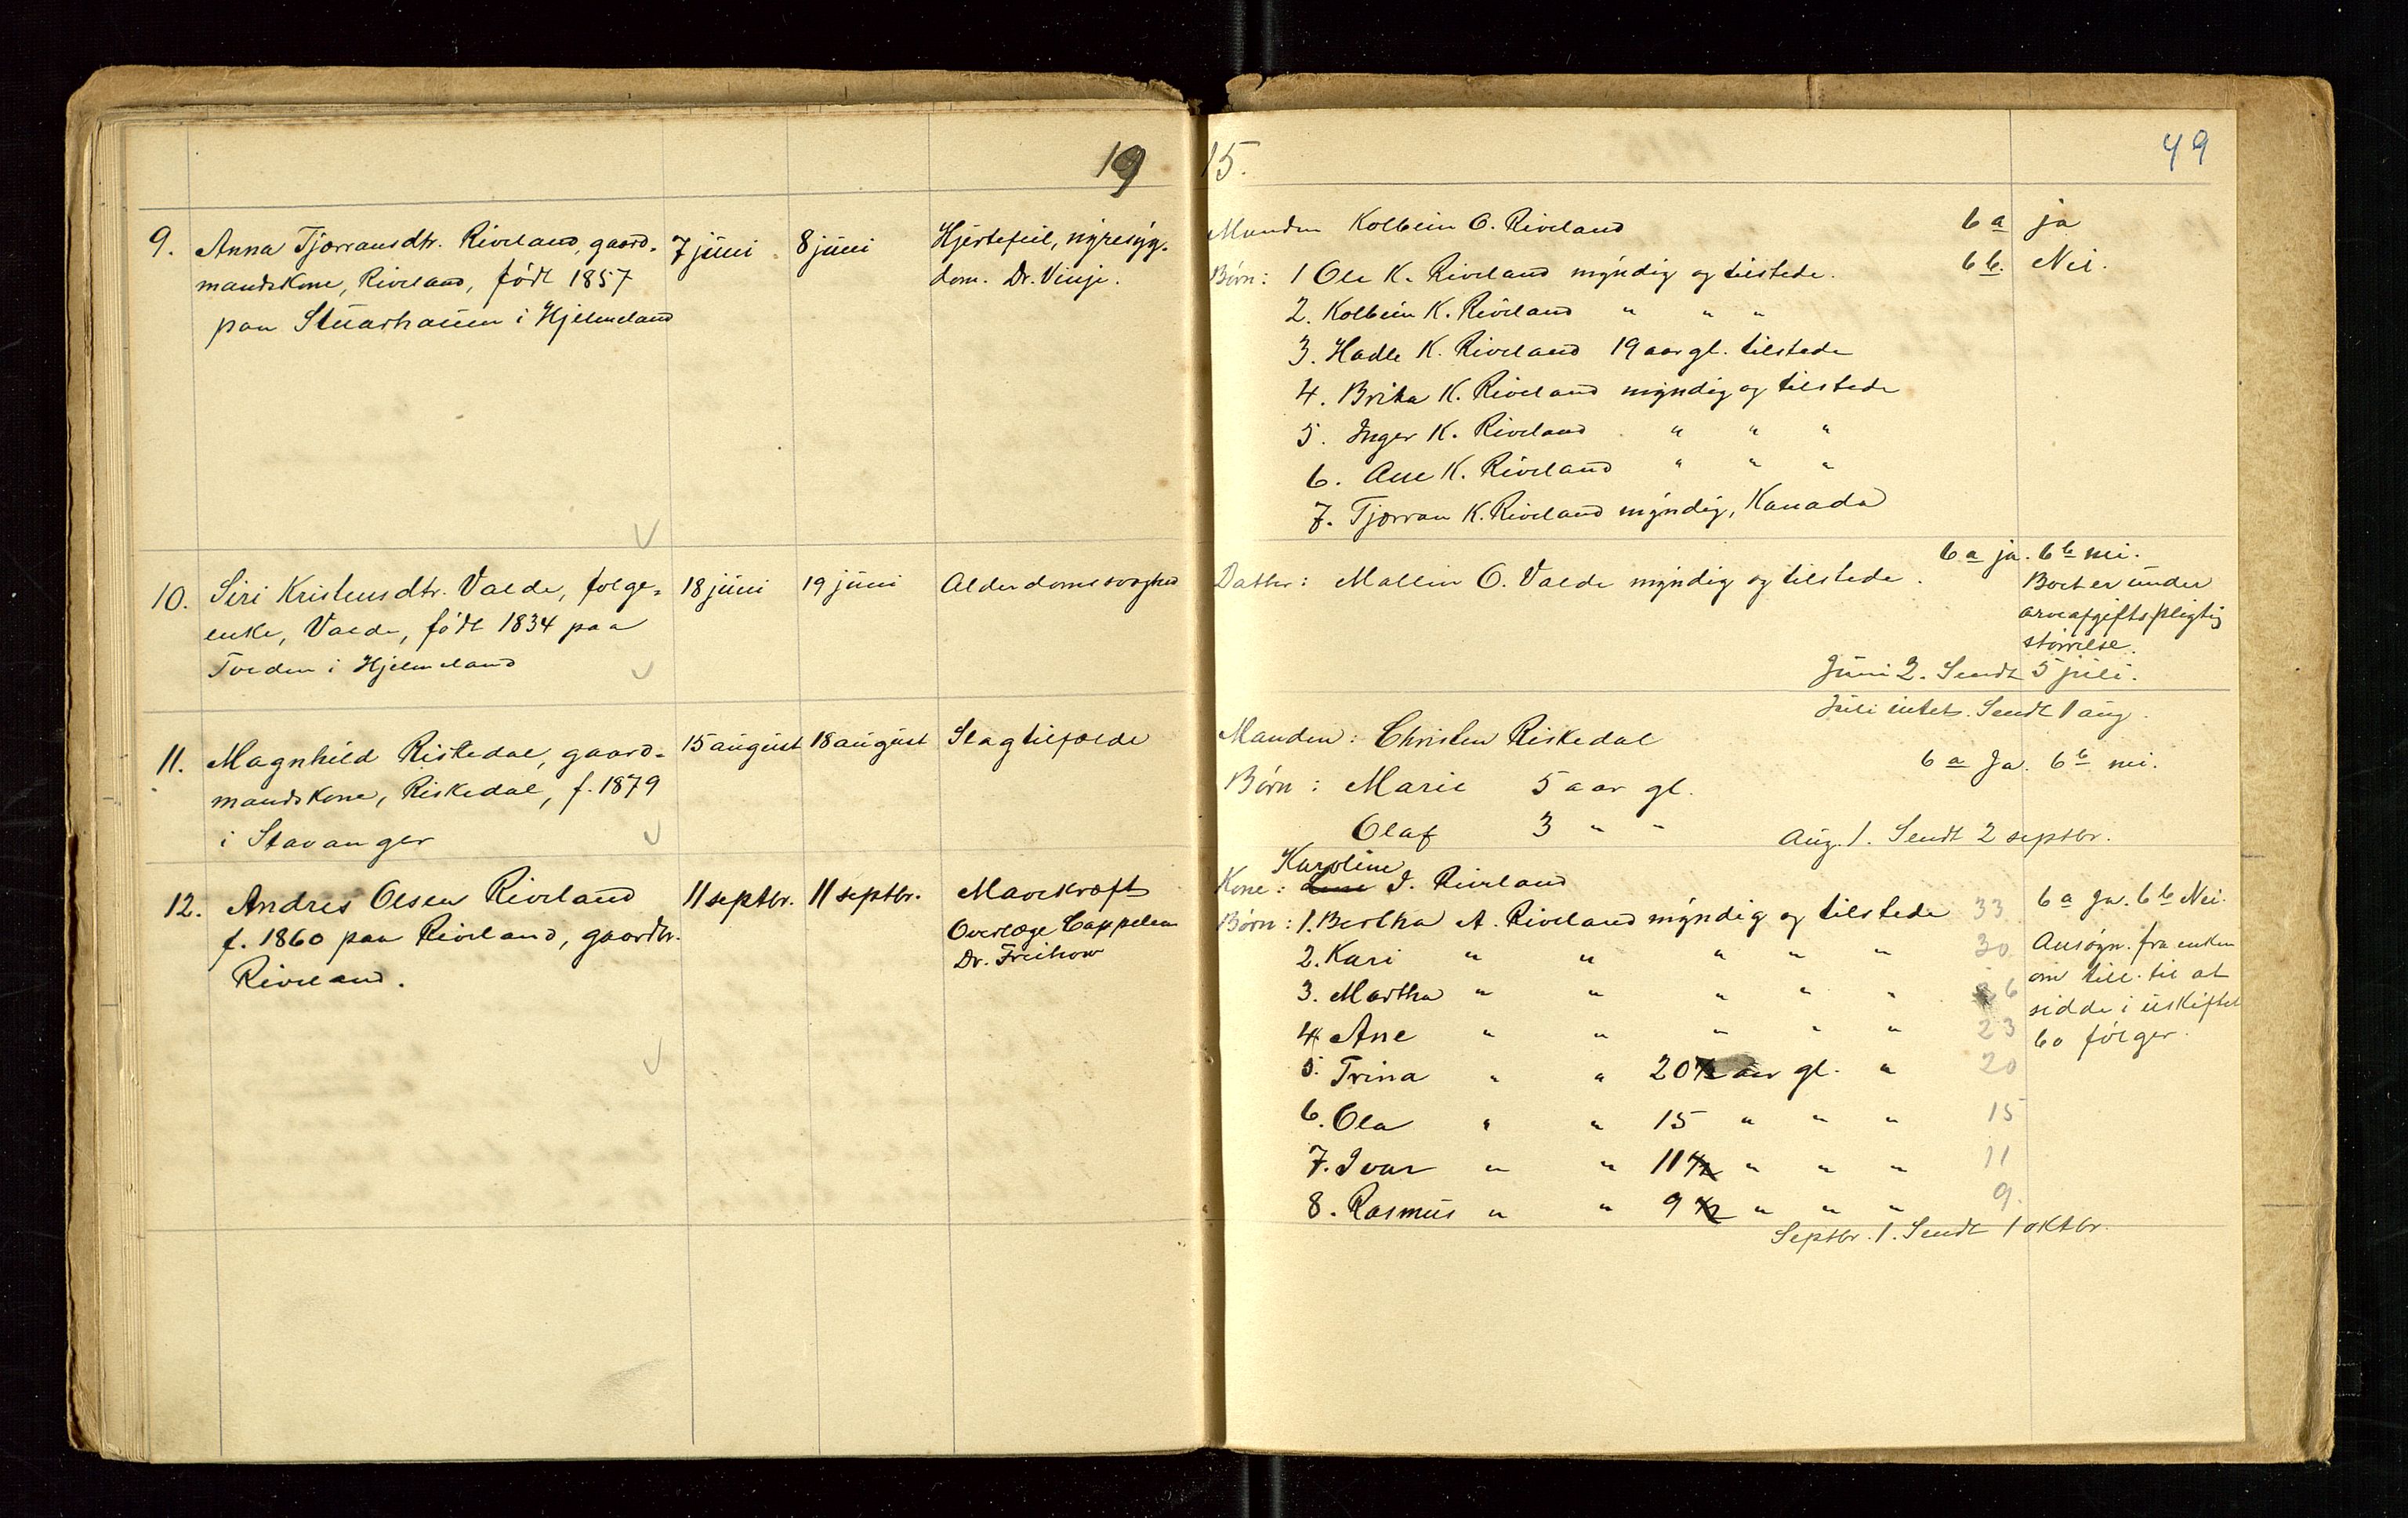 1915.
49
9. Anna Tjærransdtr. Riveland, gaard-
mandskone, Riveland, født 1857
paa Stuarhauen i Hjelmeland
7 juni
8 juni
Hjertefeil, nyresyg-
dom. Dr. Vinje.
Manden Kolbein O. Riveland
Børn: 1 Ole K. Riveland myndig og tilstede.
2. Kolbein K. Riveland " " "
3. Hadle K. Riveland 19 aar gl. tilstede
4. Brita K. Riveland myndig og tilstede
5. Inger K. Riveland " " "
6. Ane K. Riveland " " "
7. Tjærran K. Riveland myndig, Kanada
6 a ja
6 b. Nei.
10. Siri Kristensdtr. Valde, folge-
enke, Valde, født 1834 paa
Tveden i Hjelmeland
18 juni
19 juni
Alderdomssvaghed
Datter: Mallin O. Valde myndig og tilstede.
6 a ja. 6 b nei.
Boet er under
arveafgiftspligtig
størrelse.
Juni 2. Sendt 5 juli.
Juli intet. Sendt 1 aug.
11. Magnhild Riskedal, gaard-
mandskone, Riskedal, f. 1879
i Stavanger
15 august
18 august
Slagtilfælde
Manden: Christen Riskedal
Børn: Marie 5 aar gl.
Olaf 3 " "
6 a Ja. 6 b nei.
Aug. 1. Sendt 2 septbr.
12. Andres Olsen Riveland
f. 1860 paa Riveland, gaardbr.
Riveland.
11 septbr.
11 septbr.
Mavekræft
Overlæge Cappelen
Dr.
Karoline
Kone: I. Riveland
Børn: 1. Bertha A. Riveland myndig og tilstede 33
2. Kari " " " " " 30
3. Martha " " " " " 26
4 Ane " " " " " 23
5. Trina " " 20 1/2 aar gl. " 20
6. Ola " " 15 " " " 15
7. Ivar " " 11 1/2 " " " 11
8. Rasmus " " 9 1/2 " " " 9.
6 a Ja. 6 b Nei.
Ansøgn. fra enken
om till. til at
sidde i uskiftet
bo følger.
Septbr. 1. Sendt 1 oktbr.